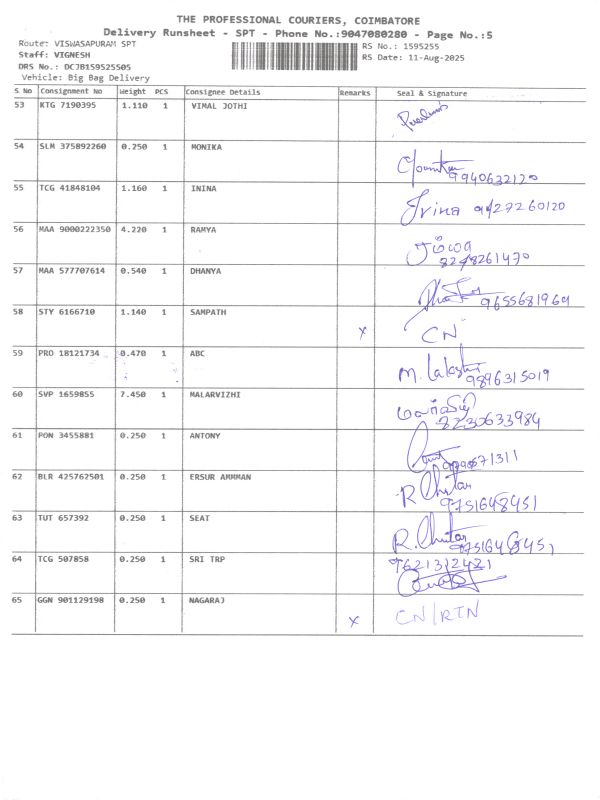 THE PROFESSIONAL COURIERS, COIMBATORE
Delivery Runsheet - SPT - Phone No.:9047080280 - Page No.:5
Route: VISWASAPURAM SPT RS No.: 1595255
Staff: VIGNESH RS Date: 11-Aug-2025
DRS No.: DCJB159525505
Vehicle: Big Bag Delivery
S.No Consignment No Weight PCS Consignee Details Remarks Seal & Signature
53 KTG 7190395 1.110 1 VIMAL JOTHI
54 SLM 375892260 0.250 1 MONIKA
9940632120
55 TCG 41848104 1.160 1 ININA Irina
56 MAA 9000222350 4.220 1 RAMYA ரம்யா
8248261470
57 MAA 577707614 0.540 1 DHANYA
9655681969
58 STY 6166710 1.140 1 SAMPATH x CN
59 PRO 18121734 0.470 1 ABC M. Lakshmi
9896315019
60 SVP 1659855 7.450 1 MALARVIZHI மலர்விழி
8230633984
61 PON 3455881 0.250 1 ANTONY
62 BLR 425762501 0.250 1 ERSUR AMMMAN
9751648451
63 TUT 657392 0.250 1 SEAT
9751648451
64 TCG 507858 0.250 1 SRI TRP 9621312421
65 GGN 901129198 0.250 1 NAGARAJ x CN/RTN